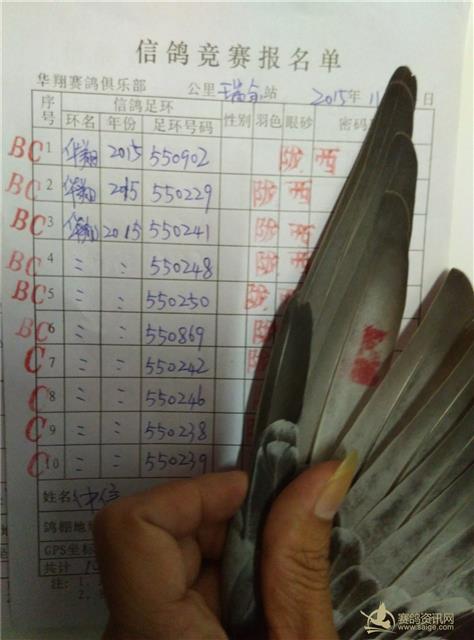 信鸽竞赛报名单
华翔赛鸽俱乐部 公里 瑞金 站 2015年 11 日
序号 信鸽足环 性别 羽色 眼砂 密码
环名 年份 足环号码
BC 1 华翔 2015 550902 陇 西
BC 2 华翔 2015 550229 陇 西
BC 3 华翔 2015 550241 陇 西
BC 4 〃 〃 550248 陇 西
BC 5 〃 〃 550250 陇 西
BC 6 〃 〃 550869 陇
C 7 〃 〃 550242 陇
C 8 〃 〃 550246
C 9 〃 〃 550238
C 10 〃 〃 550239
姓名
鸽棚地
GPS坐标
共计 10
注: 1.
2.
赛鸽资讯网
www.saige.com